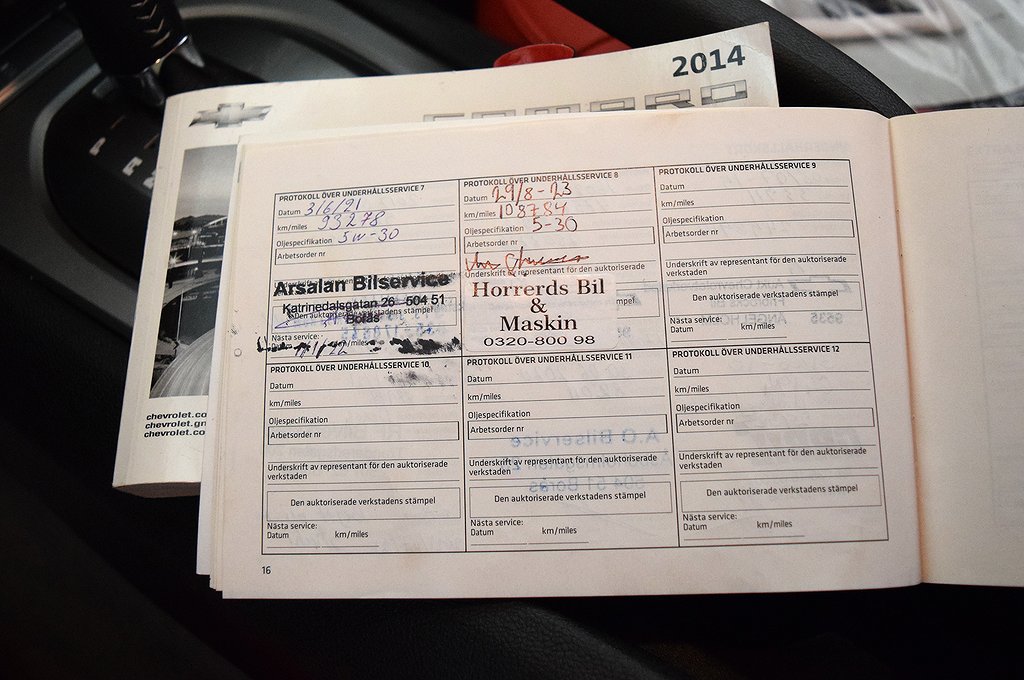 2014
CAMARO
PROTOKOLL ÖVER UNDERHÅLLSSERVICE 7
Datum 3/6/21
km/miles 93278
Oljespecifikation 5w-30
Arbetsorder nr
Arsalan Bilservice
Katrinedalsgatan 26 504 51
Den auktoriserade verkstadens stämpel
Borås
Nästa service:
km/miles
PROTOKOLL ÖVER UNDERHÅLLSSERVICE 8
Datum 29/8-23
km/miles 108784
Oljespecifikation 5-30
Arbetsorder nr
Underskrift av representant för den auktoriserade
verkstaden
Horrerds Bil
&
Maskin
0320-800 98
PROTOKOLL ÖVER UNDERHÅLLSSERVICE 9
Datum
km/miles
Oljespecifikation
Arbetsorder nr
Underskrift av representant för den auktoriserade
verkstaden
Den auktoriserade verkstadens stämpel
Nästa service:
Datum km/miles
PROTOKOLL ÖVER UNDERHÅLLSSERVICE 10
Datum
km/miles
Oljespecifikation
Arbetsorder nr
Underskrift av representant för den auktoriserade
verkstaden
Den auktoriserade verkstadens stämpel
Nästa service:
Datum km/miles
PROTOKOLL ÖVER UNDERHÅLLSSERVICE 11
Datum
km/miles
Oljespecifikation
Arbetsorder nr
Underskrift av representant för den auktoriserade
verkstaden
Den auktoriserade verkstadens stämpel
Nästa service:
Datum km/miles
PROTOKOLL ÖVER UNDERHÅLLSSERVICE 12
Datum
km/miles
Oljespecifikation
Arbetsorder nr
Underskrift av representant för den auktoriserade
verkstaden
Den auktoriserade verkstadens stämpel
Nästa service:
Datum km/miles
chevrolet.co
chevrolet.gm
chevrolet.co
16
P
R